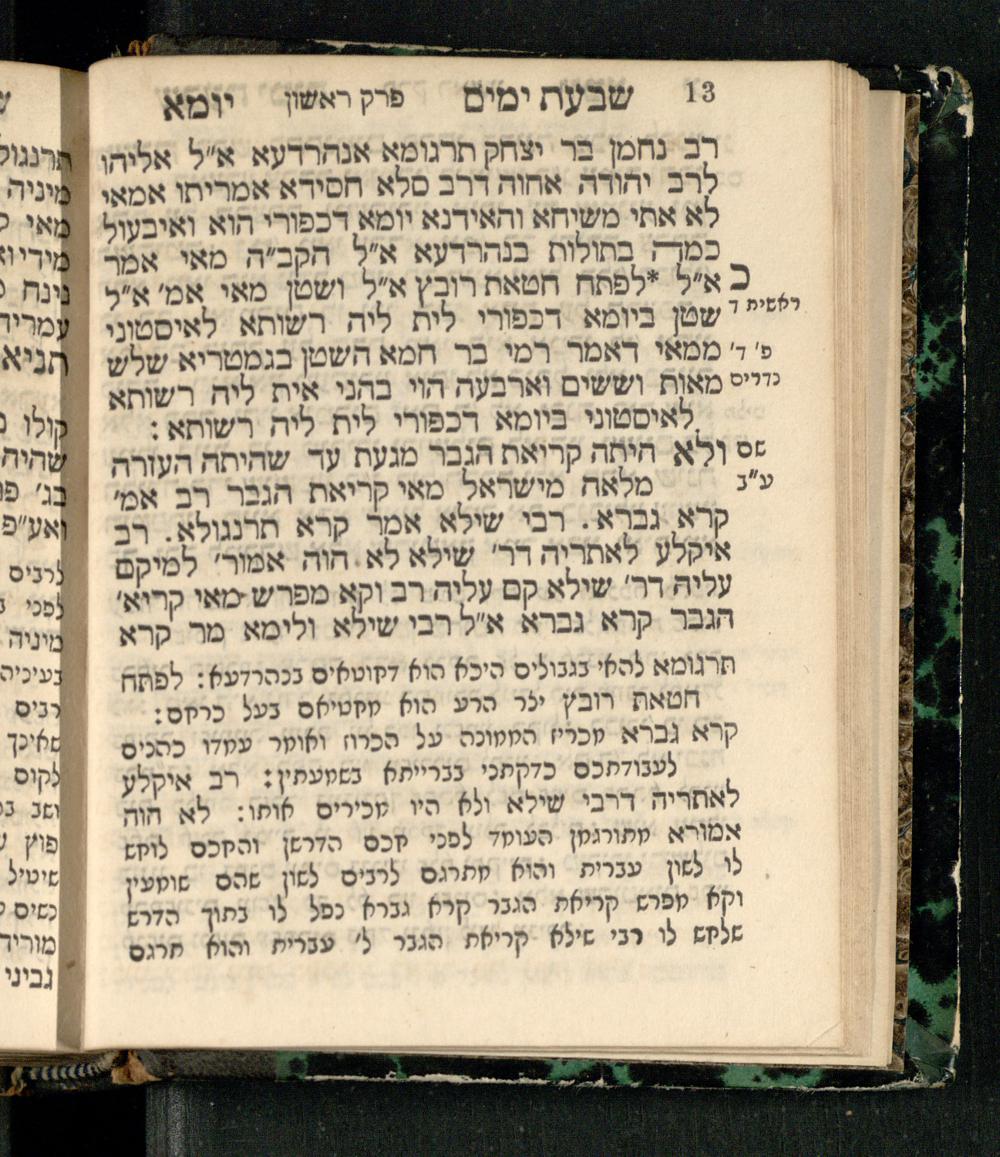 13 שבעת ימים פרק ראשון יומא
רב נחמן בר יצחק תרגומא אנהרדעא א״ל אליהו
לרב יהודה אחוה דרב סלא חסידא אמריתו אמאי
לא אתי משיחא והאידנא יומא דכפורי הוא ואיבעול
כמדה בתולות בנהרדעא א״ל הקב״ה מאי אמר
כ א״ל *לפתח חטאת רובץ א״ל ושטן מאי אמ׳ א״ל
ראשית ד שטן ביומא דכפורי לית ליה רשותא לאיסטוני
פ׳ ד׳ ממאי דאמר רמי בר חמא השטן בגמטריא שלש
נדרים מאות וששים וארבעה הוי בהני אית ליה רשותא
לאיסטוני ביומא דכפורי לית ליה רשותא :
שם ולא היתה קריאת הגבר מגעת עד שהיתה העזרה
ע״ב מלאה מישראל מאי קריאת הגבר רב אמ׳
קרא גברא. רבי שילא אמר קרא תרנגולא. רב
איקלע לאתריה דר׳ שילא לא הוה אמור׳ למיקם
עליה דר׳ שילא קם עליה רב וקא מפרש מאי קריא׳
הגבר קרא גברא א״ל רבי שילא ולימא מר קרא
תרגומא להאי בגבולים היכא הוא דחוטאים בנהרדעא: לפתח
חטאת רובץ יצר הרע הוא מחטיאם בעל כרחם:
קרא גברא מכריז הממונה על הכרוז ואומר עמדו כהנים
לעבודתכם כדקתני בברייתא בשמעתין: רב איקלע
לאתריה דרבי שילא ולא היו מכירים אותו: לא הוה
אמורא מתורגמן העומד לפני חכם הדרשן והחכם לוחש
לו לשון עברית והוא מתרגם לרבים לשון שהם שומעין
וקא מפרש קריאת הגבר קרא גברא כפל לו בתוך הדרש
שלחש לו רבי שילא קריאת הגבר ל׳ עברית והוא תרגם
תרנגול
מיניה
מאי
נינח
תניא
קולו
שהיה
בג׳
ואע״פ
לרבים
לפני
מיניה
רבים
שאינך
מוריד
גביני